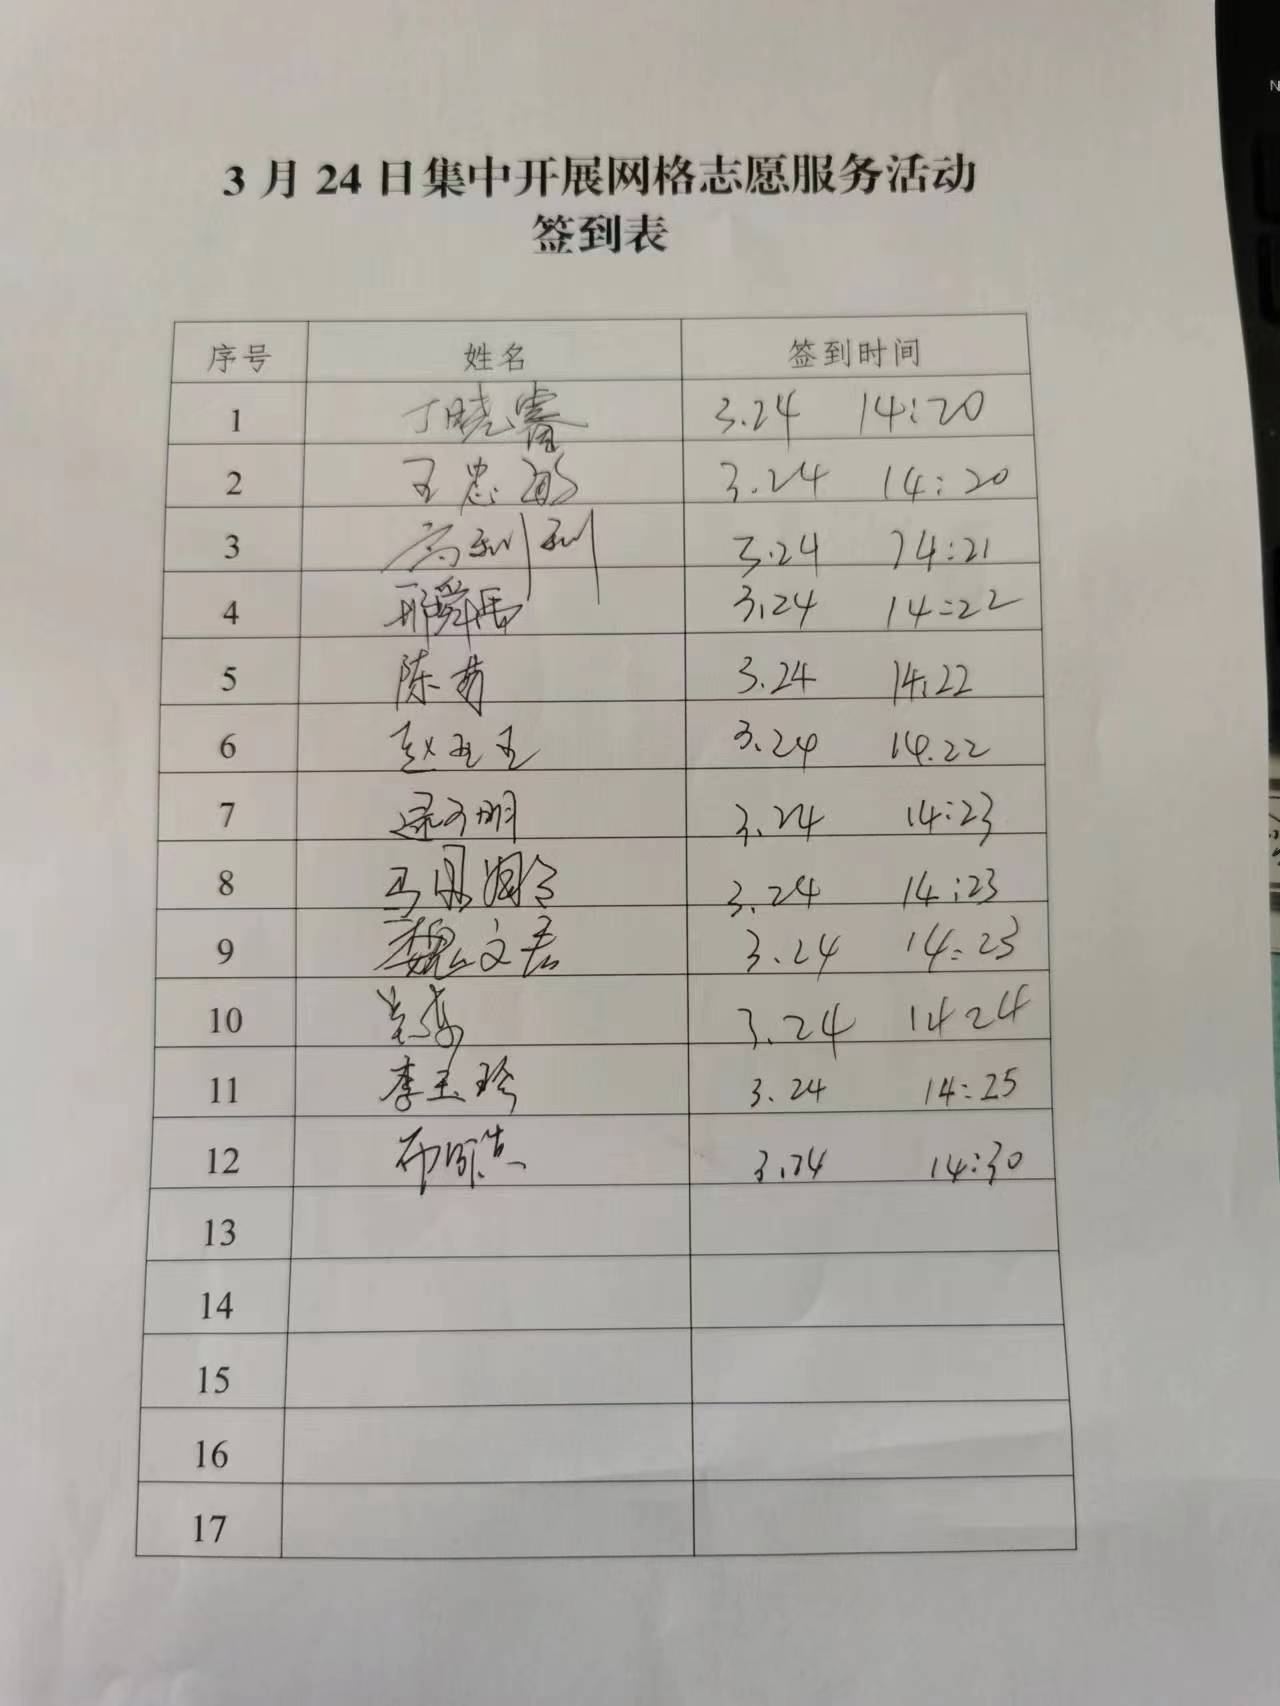 3月24日集中开展网格志愿服务活动
签到表
序号 姓名 签到时间
1 丁晓睿 3.24 14:20
2 王忠 3.24 14:20
3 高利利 3.24 14:21
4 邢舜禹 3.24 14:22
5 陈 3.24 14:22
6 赵玉玉 3.24 14.22
7 明 3.24 14:23
8 马丹 3.24 14:23
9 魏文君 3.24 14:23
10 3.24 14 24
11 李玉玲 3.24 14:25
12 3.24 14:30
13
14
15
16
17